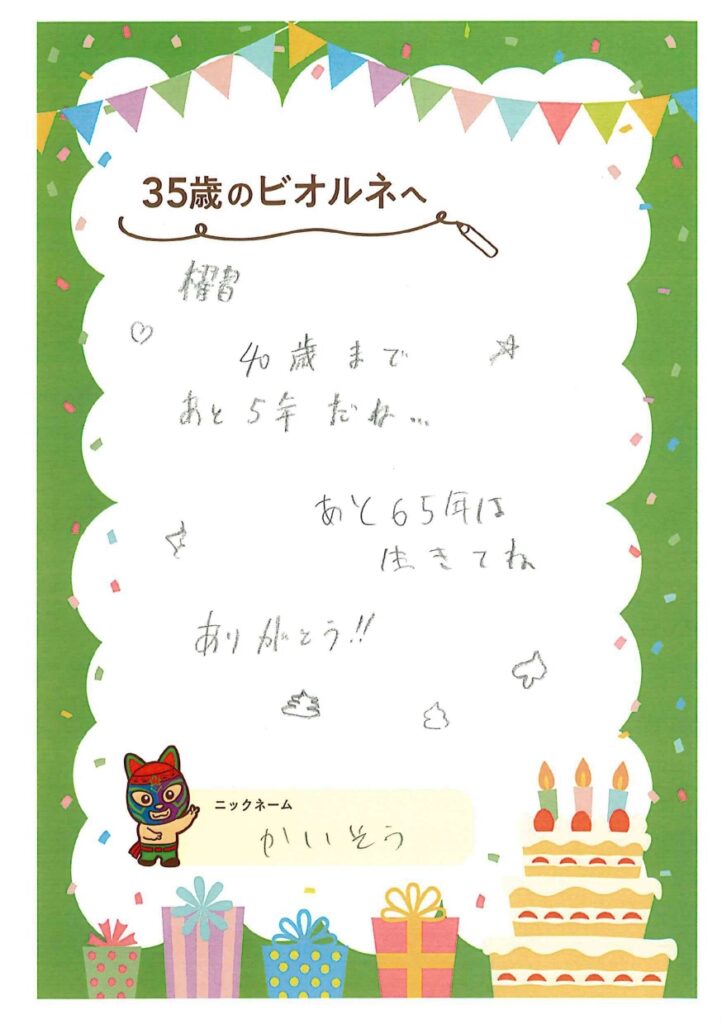 35歳のビオルネへ
40歳まで
あと5年だね…
あと65年は
生きてね
ありがとう!!
ニックネーム
かいそう